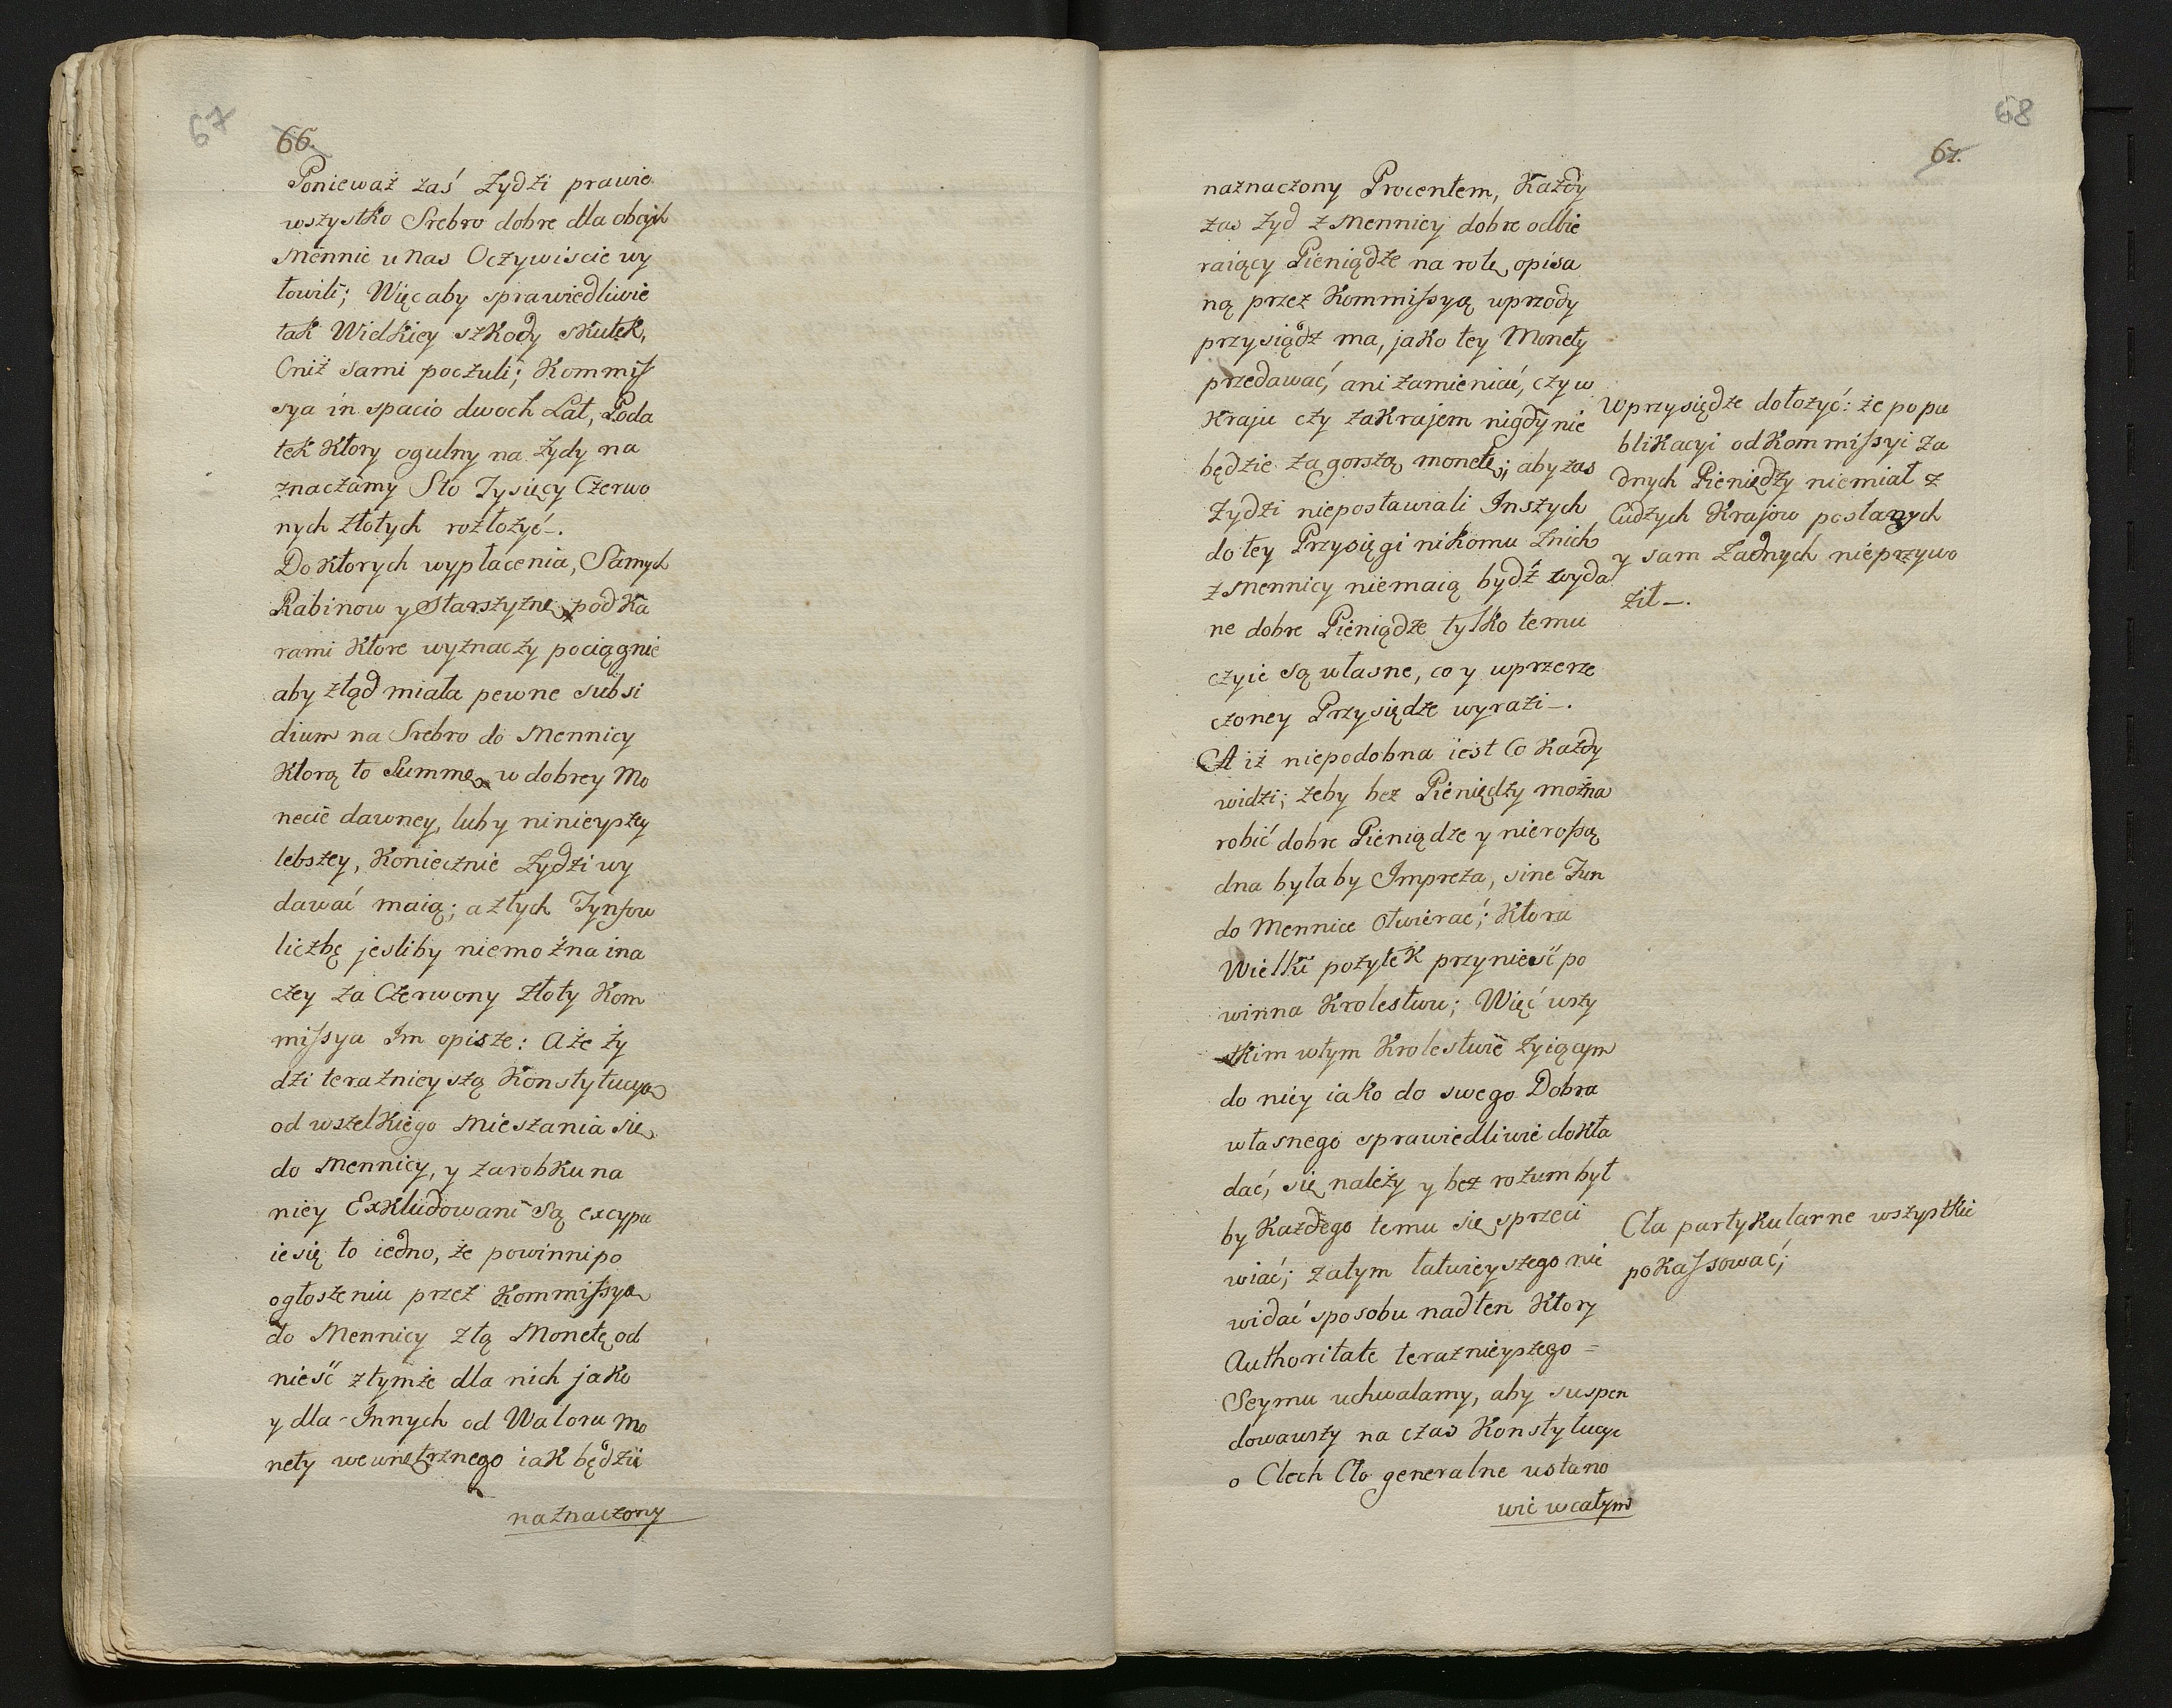 67
66.
Ponieważ zaś Żydzi prawie
wszystko Srebro dobre dla obojch
Mennic u Nas Oczywiscie wy
łowili; Więc aby sprawiedliwie
tak Wielkiey szkody skutek,
Oniż sami poczuli; Kommis
sya in spacio dwoch Lat, Poda
tek ktory ogulny na Żydy na
znaczamy Sto Tysięcy Czerwo
nych złotych rozłożyć_.
Do ktorych wypłacenia, Samych
Rabinow y Starszyznę pod ka
rami ktore wyznaczy pociągnie
aby ztąd miała pewne subsi
dium na Srebro do Mennicy
ktorą to Summę w dobrey Mo
necie dawney, luby ninieyszey
lebszey, koniecznie Żydzi wy
dawać maią; a złych Tynfow
liczbę jesliby niemożna ina
czey za Czerwony złoty Kom
missya Im opisze: A że ży
dzi teraznieyszą Konstytucyą
od wszelkiego Mieszania się
do Mennicy, y zarobku na
niey Exkludowani są excypu
ie się to iedno, że powinni po
ogłoszeniu przez Kommissyą
do Mennicy złą Monetę od
nieść z tymże dla nich jako
y dla Innych od Waloru Mo
nety wewnętrznego iak będzie
naznaczony
68
67.
naznaczony Procentem, Każdy
zas Żyd z Mennicy dobre odbie
raiący Pieniądze na rotę opisa
ną przez Kommissyą uprzody
przysiądz ma, jako tey Monety
przedawać, ani zamieniać, czy w
Kraju czy zakrajem nigdy nie
będzie za gorszą monetę; aby zas
Żydzi niepostawiali Inszych
do tey Przysięgi nikomu Znich
z Mennicy niemaią bydź wyda
ne dobre Pieniądze tylko temu
czyie są własne, co y w przerze
czoney Przysiędze wyrazi_.
A iż niepodobna iest Co Każdy
widzi; żeby bez Pieniędzy można
robić dobre Pieniądze y nierossą
dna byłaby Impreza, sine Fun
do Mennice Otwierać; Ktora
Wielki pożytek przynieść po
winna Krolestwu; Więc wszy
stkim w tym Krolestwie żyiącym
do niey iako do swego Dobra
własnego sprawiedliwie dokła
dać, się należy y bez rozum był
by Każdego temu się sprzeci
wiać; zatym łatwieyszego nie
widać sposobu nad ten Ktory
Authoritate teraznieyszego =
Seymu uchwalamy, aby suspen
dowawszy na czas Konstytucye
o Clech Cło generalne ustano
wic w całym
W przysiędze dołożyć: że po pu
blikacyi od Kommissyi Ża
dnych Pieniędzy niemiał z
Cudzych Krajow posłanych
y sam Żadnych nieprzywo
ził_.
Cła partykularne wszystkie
pokassować;